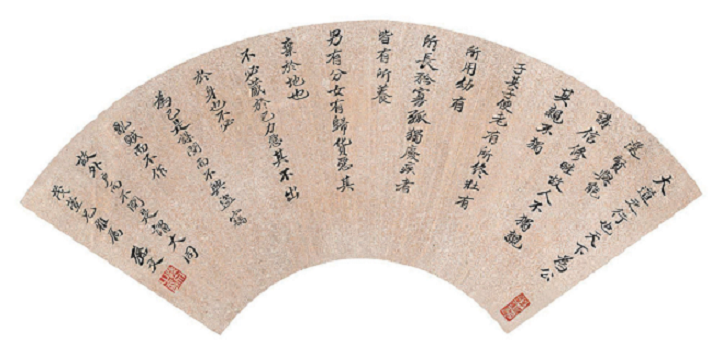 大道之行也天下為公
選賢與能
講信修睦故人不獨親
其親不獨
子其子使老有所終壯有
所用幼有
所長矜寡孤獨廢疾者
皆有所養
男有分女有歸貨惡其
棄於地也
不必藏於己力惡其不出
於身也不必
為己是謀閉而不興盜竊
亂賊而不作
故外戶而不閉是謂大同
兄雅屬 孫文